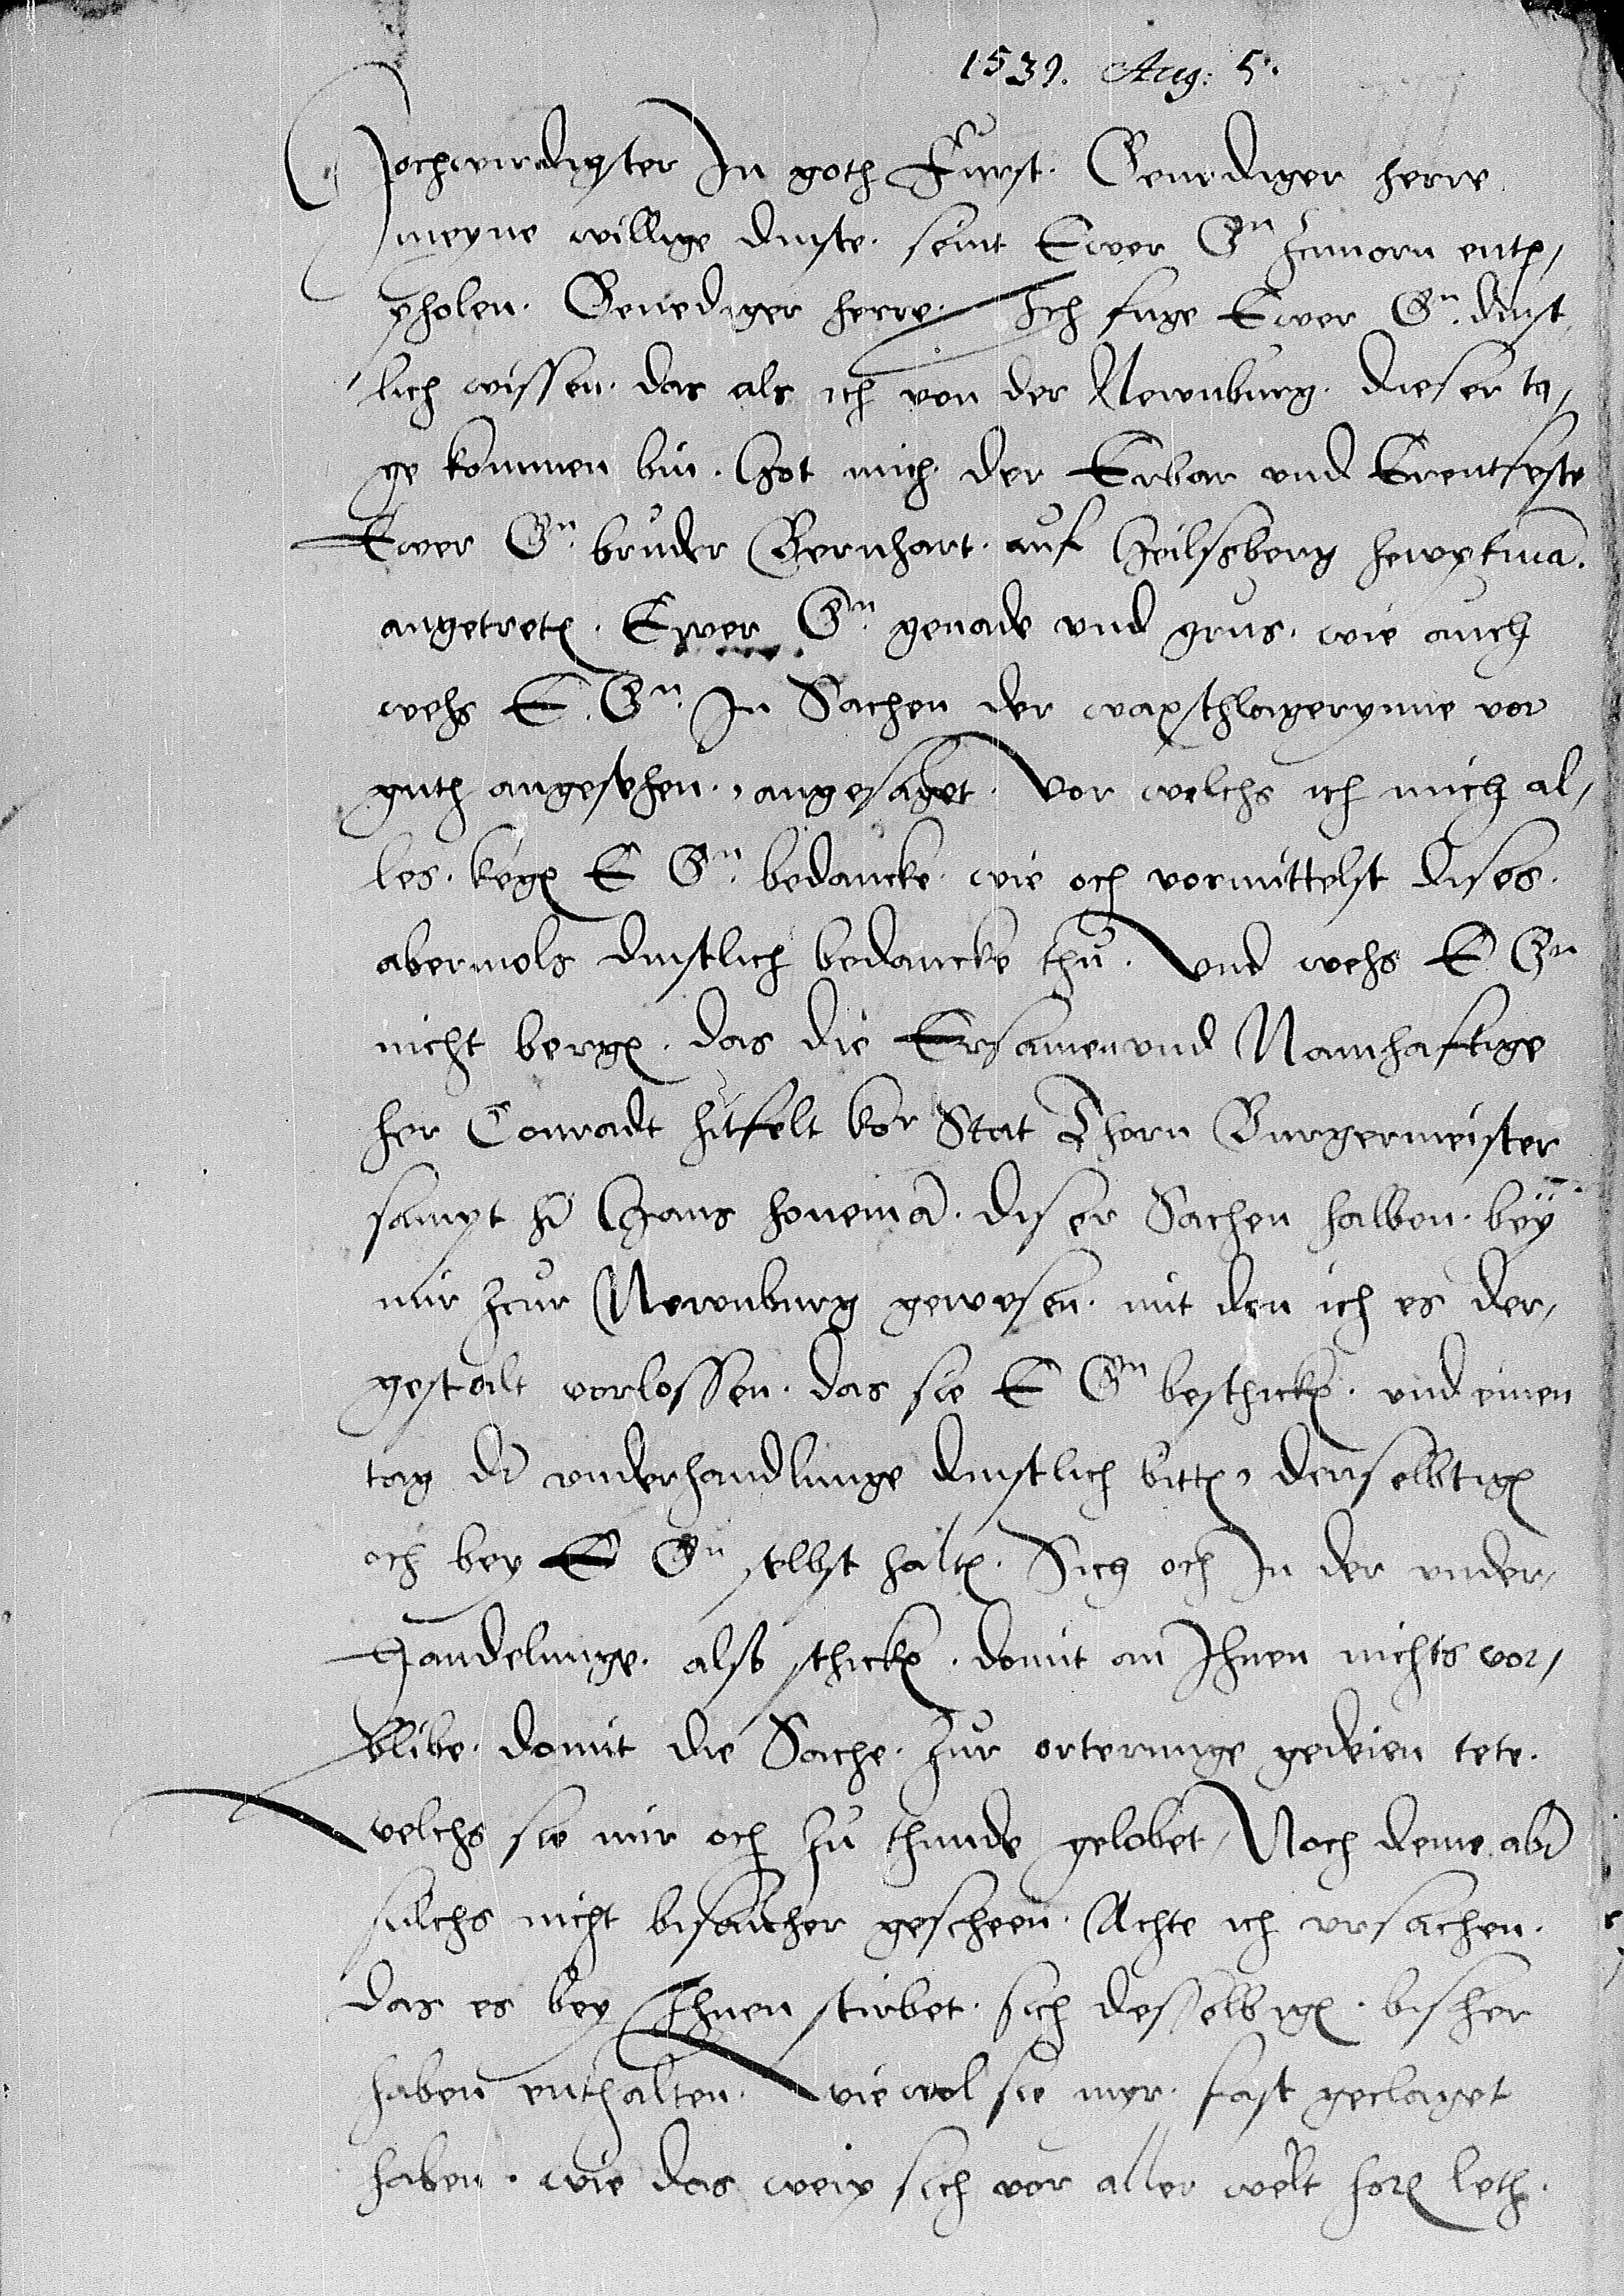 1539. Aug: 5.
Hochwirdigster In goth Furst. Genediger herre
meyne willige dinste. seint Ewer Gn zcuuorn entp,
pholen. Genediger herre. Ich fuge Ewer Gn. dinst
lich wissen. das als ich von der Newnburg. dieser ta,
ge kommen bin. Hot mich der Erbar und Erentfeste
Ewer Gn. bruder Bernhart. auf Heilsberg hewptmã.
angetretẽ. Ewer Gn. genade vnd grus. wie auch
wehs E. Gn. In Sachen der waxschlagerynne vor
guth angesehen., angesaget. Vor welchs ich mich al,
les. kegẽ E Gn. bedancke. wie och vormittelst dises.
abermols dinstlich bedancke thu. vnd wehs E Gn
nicht bergẽ. das die Ersamen vnd Namhaftige
her Conradt hitfelt kor Stat Thorn Burgermeister
sampt hr Hans honemã. diser Sachen halben. bey
mir zcur Newnburg gewesen. mit den ich es der,
gestalt vorlossen. das sie E Gn beschickẽ. vnd einen
tag dr vnderhandlunge dinstlich bittẽ, denselbtigẽ
och bey E Gn selbst haltẽ. Sich och In der vnder,
Handelunge. also schickẽ. domit an Ihnen nichts vor,
blibe. domit die Sache. zur orterunge gedeien tete.
welchs sie mir och zu thunde gelobet, Noch deme abr
sulchs nicht bisanher gescheen. Achte ich vrsachen.
das es bey Ihnen stirbet. sich desselbigẽ. bisher
haben enthalten. wiewol sie myr. fast geclaget
haben. wie das weip sich vor aller welt horẽ leth.